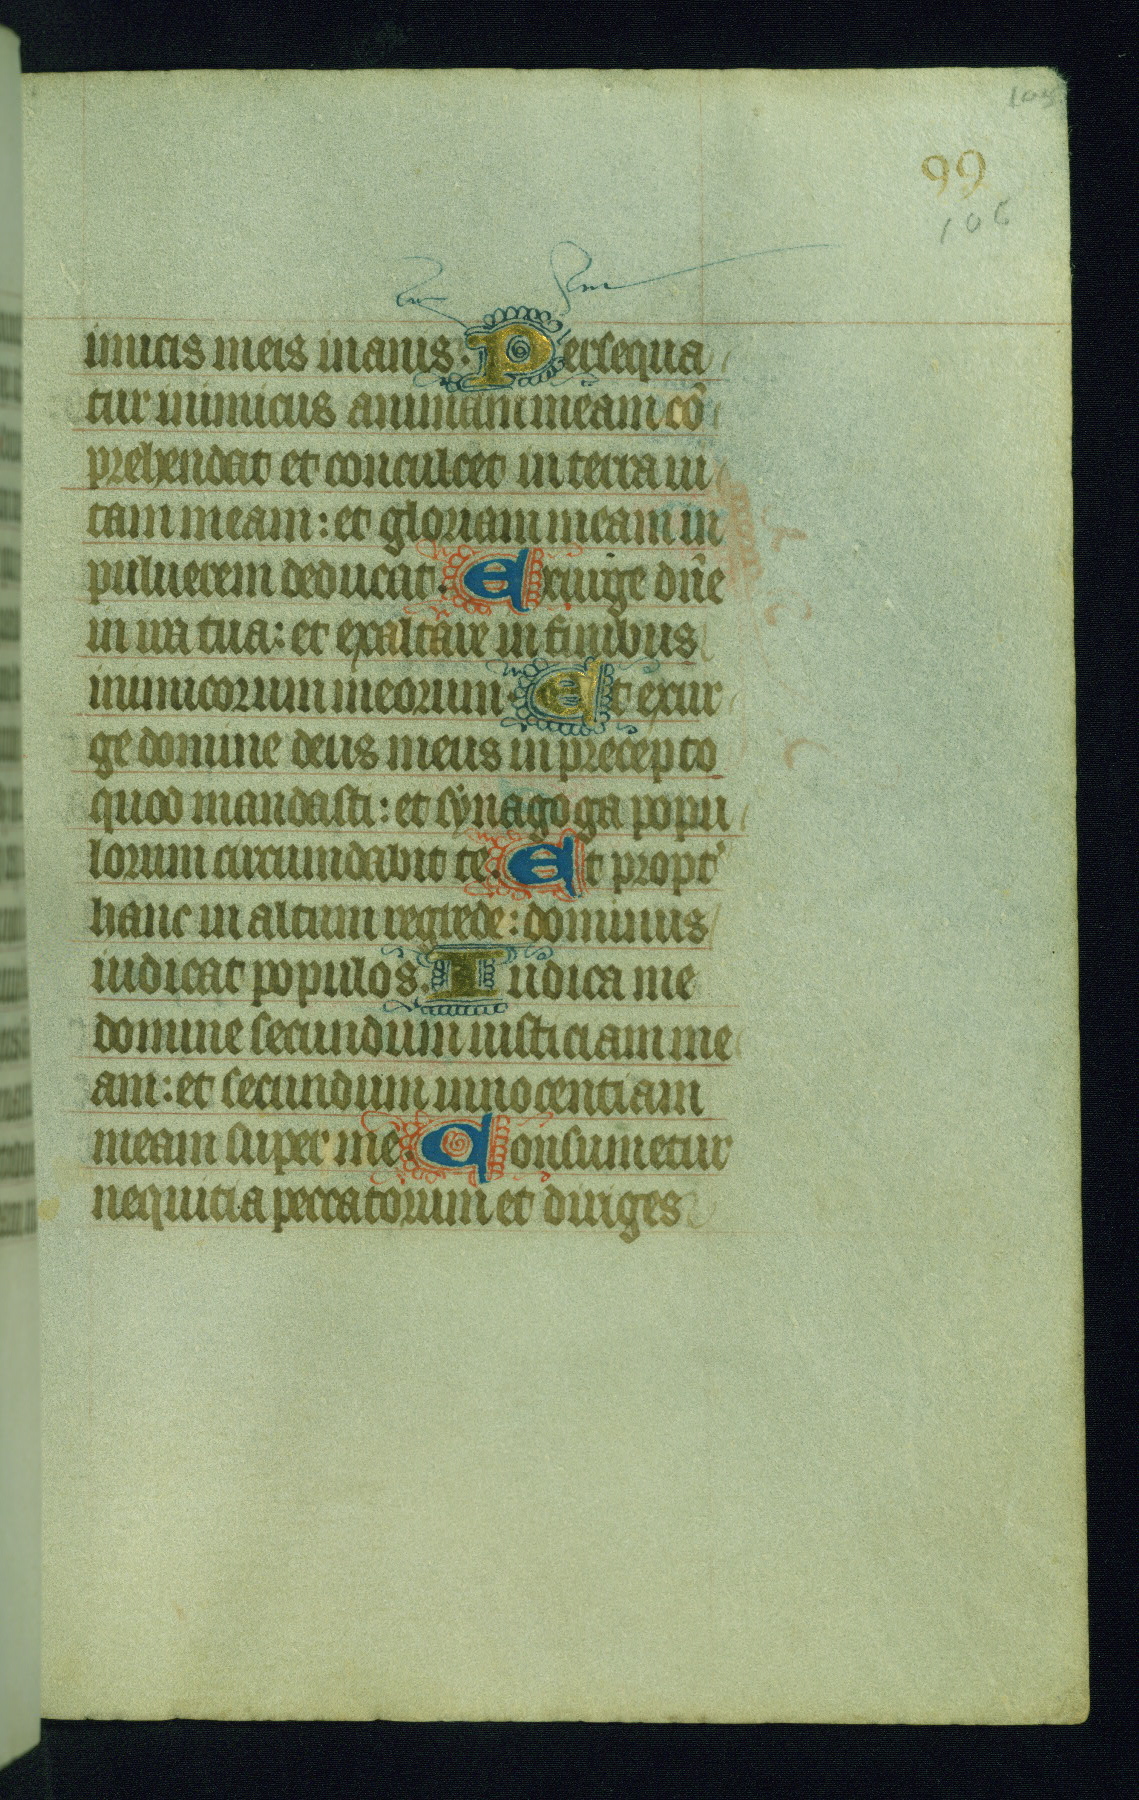 105
99
106
imicis meis inanis. Persequa
tur inimicus animam meam cō
prehendat et conculcet in terra ui
tam meam: et gloriam meam in
puluerem deducat. Exurge dñe
in ira tua: et exaltare in finibus
inimicorum meorum Et exur
ge domine deus meus in precepto
quod mandasti: et synagoga popu
lorum circumdabit te. Et propt'
hanc in altum regrede: dominus
iudicat populos. Iudica me
domine secundum iusticiam me
am: et secundum innocentiam
meam super me. Consumetur
nequitia peccatorum et diriges